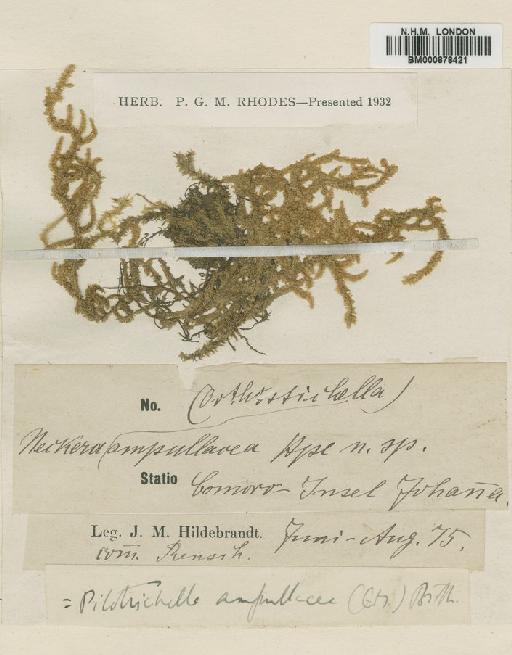 N.H.M. LONDON
BM000878421
HERB. P. G. M. RHODES—Presented 1932
No. (Orthostichella)
Neckera ampullacea Hpe n. sp.
Statio Comoro-Insel Johaña.
Leg. J. M. Hildebrandt. Juni-Aug. 75.
com. Rensch.
= Pilotrichella ampullacea